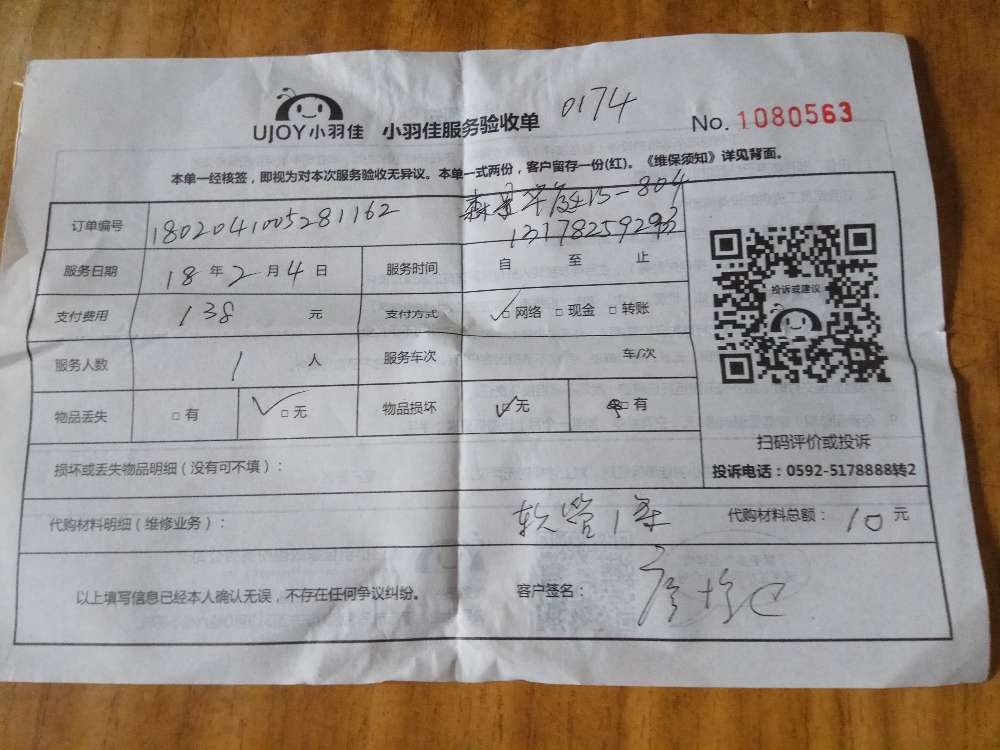 UJOY小羽佳 小羽佳服务验收单 0174 No. 1080563
本单一经核签，即视为对本次服务验收无异议。本单一式两份，客户留存一份(红)。《维保须知》详见背面。
订单编号 1802041005281162 15-804
服务日期 18 年 2 月 4 日 服务时间 自 至 止
支付费用 138 元 支付方式 ✓□网络 □现金 □转账
投诉或建议
服务人数 1 人 服务车次 车/次
物品丢失 □有 ✓□无 物品损坏 ✓□无 □有
扫码评价或投诉
损坏或丢失物品明细（没有可不填）：
投诉电话：0592-5178888转2
代购材料明细（维修业务）： 软管1条 代购材料总额： 10 元
以上填写信息已经本人确认无误，不存在任何争议纠纷。 客户签名：